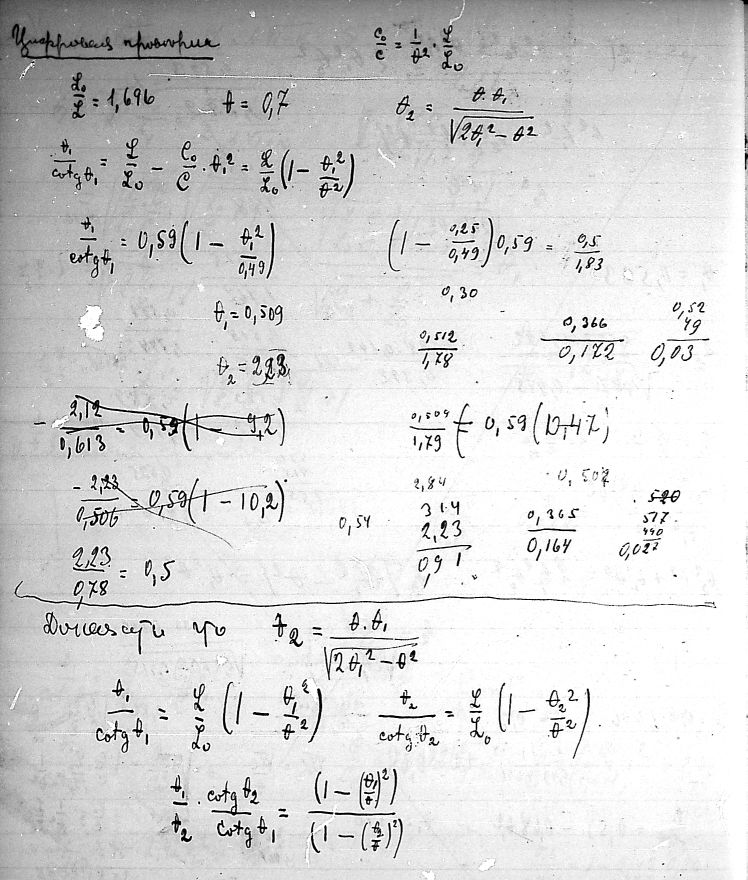 Цифровая проверка
C₀/C = 1/θ² · L/L₀
L₀/L = 1,696 θ = 0,7 θ₂ = θ·θ₁/√(2θ₁² − θ²)
θ₁/cotg θ₁ = L/L₀ − C₀/C · θ₁² = L/L₀ (1 − θ₁²/θ²)
θ₁/cotg θ₁ = 0,59 (1 − θ₁²/0,49) (1 − 0,25/0,49) 0,59 = 0,5/1,83
0,30
θ₁ = 0,509 0,512/1,78 0,366 0,172 0,52 49 0,03
θ₂ = 2,23
− 2,12/0,613 = 0,59 (1 − 9,2) 0,509/1,79 = 0,59 (0,47)
− 2,23/0,506 = 0,59 (1 − 10,2) 0,54 2,84 314 2,23 0,91 0,507 0,365 0,164 520 517 490 0,027
2,23/0,78 = 0,5
Доказать что θ₂ = θ·θ₁/√(2θ₁² − θ²)
θ₁/cotg θ₁ = L/L₀ (1 − θ₁²/θ²) θ₂/cotg θ₂ = L/L₀ (1 − θ₂²/θ²)
θ₁/θ₂ · cotg θ₂/cotg θ₁ = (1 − (θ₁/θ)²)/(1 − (θ₂/θ)²)